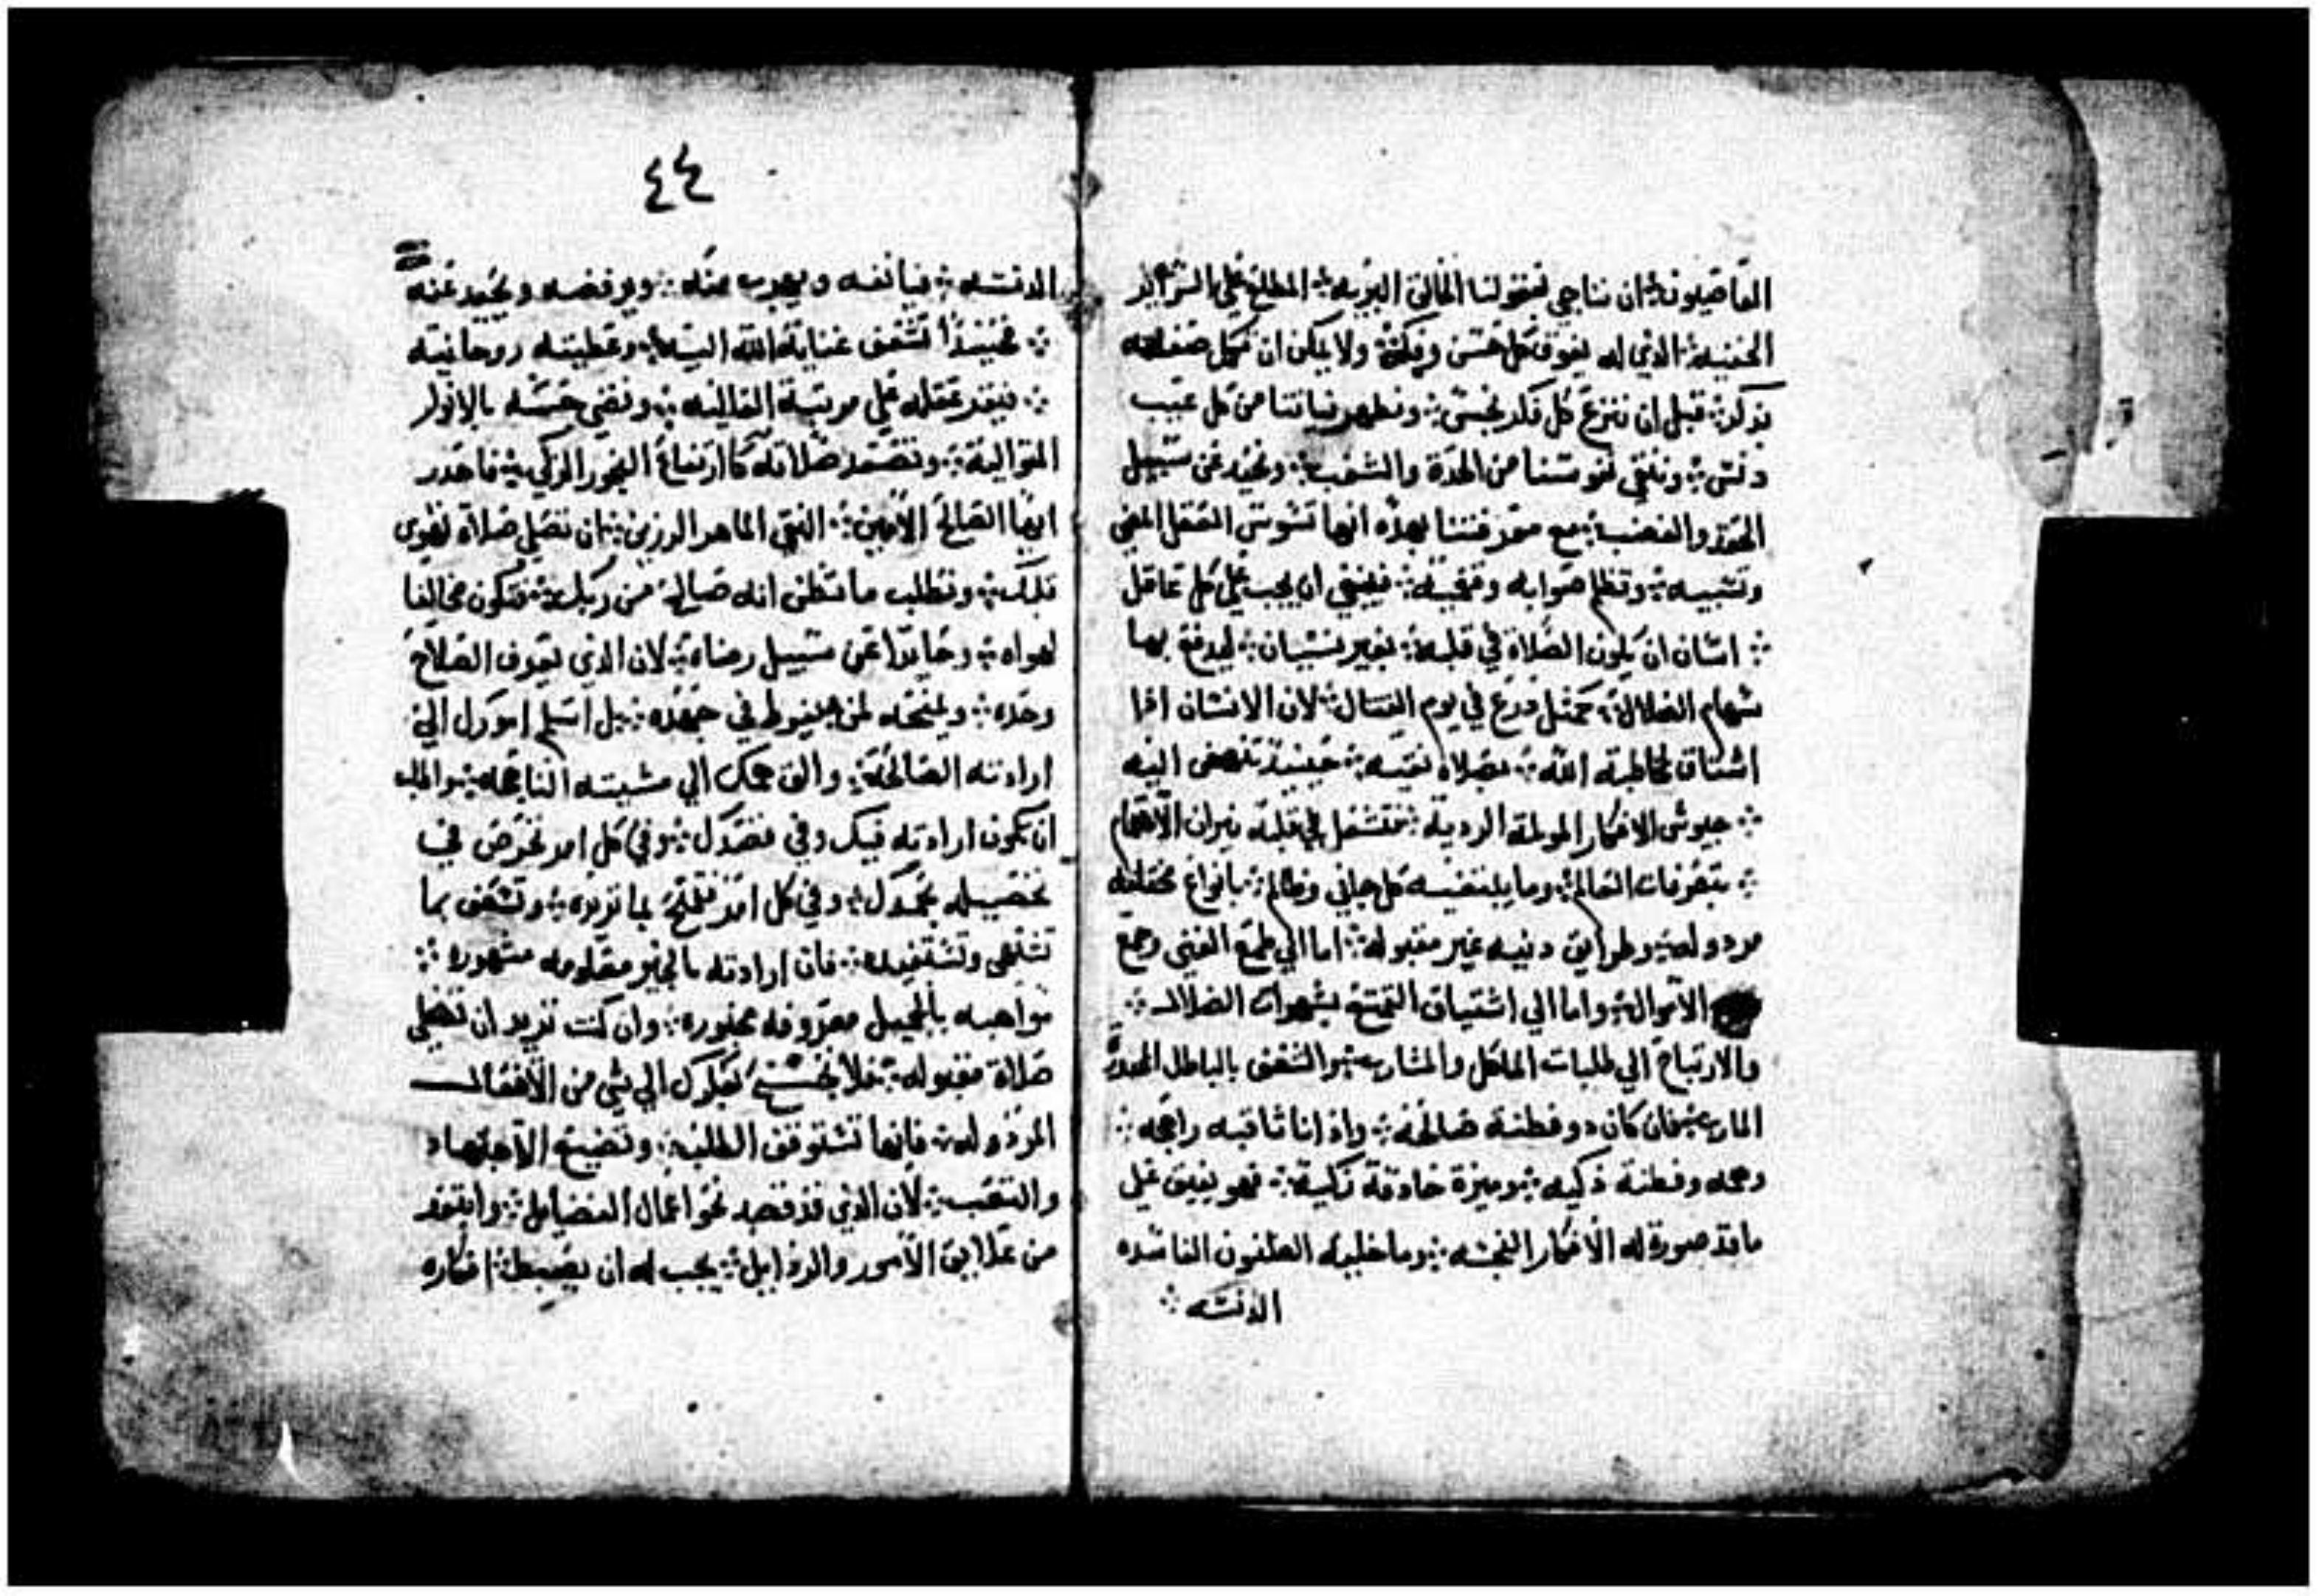 ان نناجي بعقولنا الخالق البريه ❖ المطلع علي السراير
الخفيه ❖ الذي له يفوق كل حس وفكر ❖ ولا يمكن ان
بذكر ❖ قبل ان ننزع كل فكر نجس ❖ ونطهر نياتنا من كل عيب
دنس ❖ وننقي نفوسنا من الحدة والشغب ❖ ونحيد عن سبيل
الحقد والغضب ❖ مع معرفتنا بهذه انها تشوش العقل المضي
وتسبيه ❖ وتظلم صوابه ❖ فينبغي ان يجب علي كل عاقل
❖ انسان ان يكون الصلاة في قلبه ❖ بغير نسيان ❖ ليدفع بها
سهام الضلال ❖ كمثل درع في يوم القتال ❖ لان الانسان اذا
اشتاق لمخاطبة الله ❖ بصلاه نقيه ❖ حينيذ تنهض اليه
❖ جيوش الافكار المولمة الرديه ❖ فتشعل في قلبه نيران الاهتمام
❖ بتصرفات العالم ❖ وما كل جاني وظالم ❖ بانواع مختلفه
مردوله ❖ وطرايق دنيه غير مقبوله ❖ اما الي طمع الغني وجمع
الاموال ❖ واما الي اشتياق التمتع بشهوات الضلال ❖
والارتياح الي طلبات الماكل والمشارب ❖ والشغف بالباطل
فان كان ذو فطنة صالحه ❖ واذانا ثاقبه راجحه ❖
وفطنة ذكيه ❖ وميزة حاذقة زكية ❖ فهو يفيق علي
ما قد صورة له الافكار النجسه ❖ وما خليه الظنون الفاسده
الدنسه ❖
٤٤
الدنسه ❖ فيانفه ويهرب منه ❖ ويرفضه ويحيد عنه
❖ فحينيذا تسعف عناية الله اليه ❖ وعطيته روحانيه
❖ عقله علي مرتبة العاليه ❖ وتضي حسه بالانوار
المتواليه ❖ وتصعد صلاته كارتفاع البخور الزكي ❖ فاحذر
ايها الصالح الامين ❖ النقي الماهر الرزين ❖ ان تصلي صلاة لهوي
قلبك ❖ وتطلب ما تظن انه صالح من ربك ❖ فتكون مخالفا
لهواه ❖ وحايدا عن سبيل رضاه ❖ لان الذي يعرف الصلاح
وحده ❖ ويمنحه لمن في جهده ❖ بل اسلم امورك الي
ارادته الصالحة ❖ والق همك الي مشيته الناجحه ❖ واطلب
ان تكون ارادته فيك وفي مقصدك ❖ وفي كل امر تحرص في
تحصيله بجهدك ❖ وفي كل امر بما تريده ❖ وتسعف بما
تشتهي وتستفيده ❖ فان ارادته بالخير معلومه مشهوره ❖
مواهبه بالجميل معروفه ❖ وان كنت تريد ان تصلي
صلاة مقبوله ❖ فلا الي شي من الافعال
المردوله ❖ فانها تستوقف الطلبه ❖ وتضيع الاجتهاد
والتعب ❖ لان الذي قد قصد نحو اعمال الفضايل ❖ وابتعد
من علايق الامور والرذايل ❖ يجب له ان يضبط ❖ افكاره